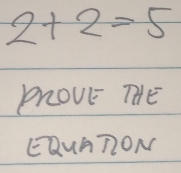 2+2=5
PROVE THE
EQUATION